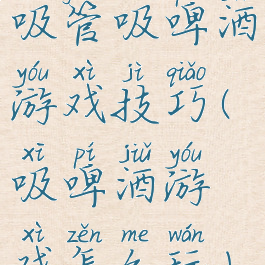 吸管吸啤酒
yóu xì jì qiǎo
游戏技巧(
xī pí jiǔ yóu
吸啤酒游
xì zěn me wán
戏怎么玩)